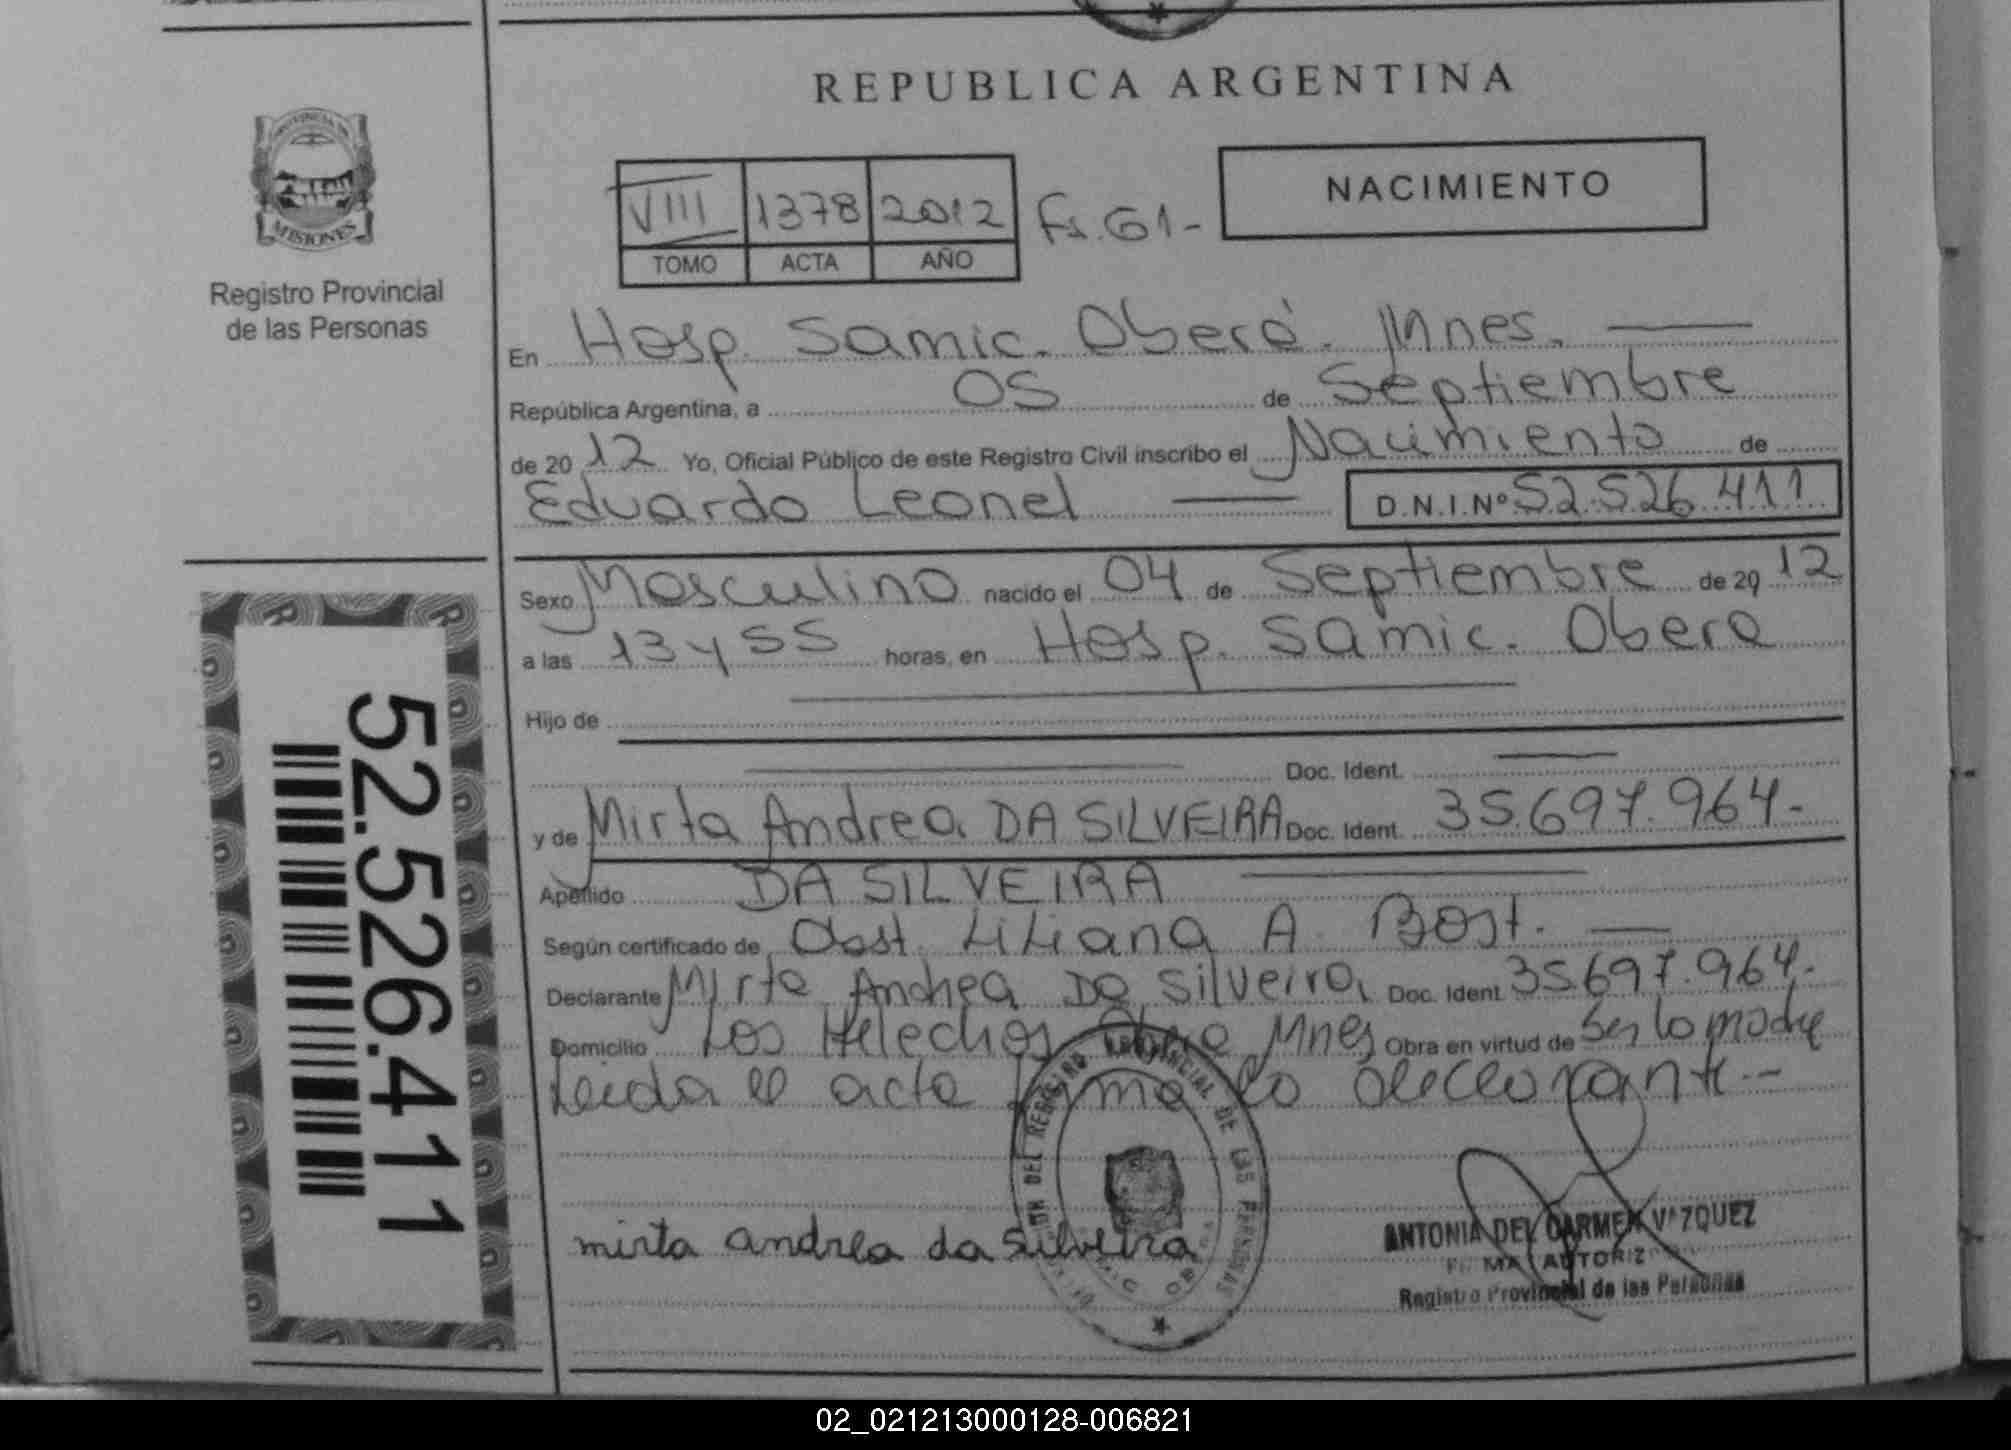 REPUBLICA ARGENTINA
PROVINCIA DE
MISIONES
Registro Provincial
de las Personas
VIII 1378 2012 Fs. 61-
TOMO ACTA AÑO
NACIMIENTO
En Hosp. Samic. Oberá. Mnes.
República Argentina, a 05 de Septiembre
de 2012 Yo, Oficial Público de este Registro Civil inscribo el Nacimiento de
Eduardo Leonel D.N.I.Nº 52.526.411
Sexo Masculino nacido el 04 de Septiembre de 2012
a las 13 y 55 horas, en Hosp. Samic. Obera
Hijo de
Doc. Ident.
y de Mirta Andrea DA SILVEIRA Doc. Ident. 35.697.964-
Apellido DA SILVEIRA
Según certificado de Obst. Liliana A. Bost.
Declarante Mirta Andrea Da Silveira Doc. Ident. 35.697.964.-
Domicilio Los Helechos Obra Mnes Obra en virtud de Ser la madre
Leida el acta firma la declarante.-
52.526.411
DEL REGISTRO PROVINCIAL DE LAS PERSONAS
mirta andrea da silveira
ANTONIA DEL CARMEN VAZQUEZ
Registro Provincial de las Personas
02_021213000128-006821